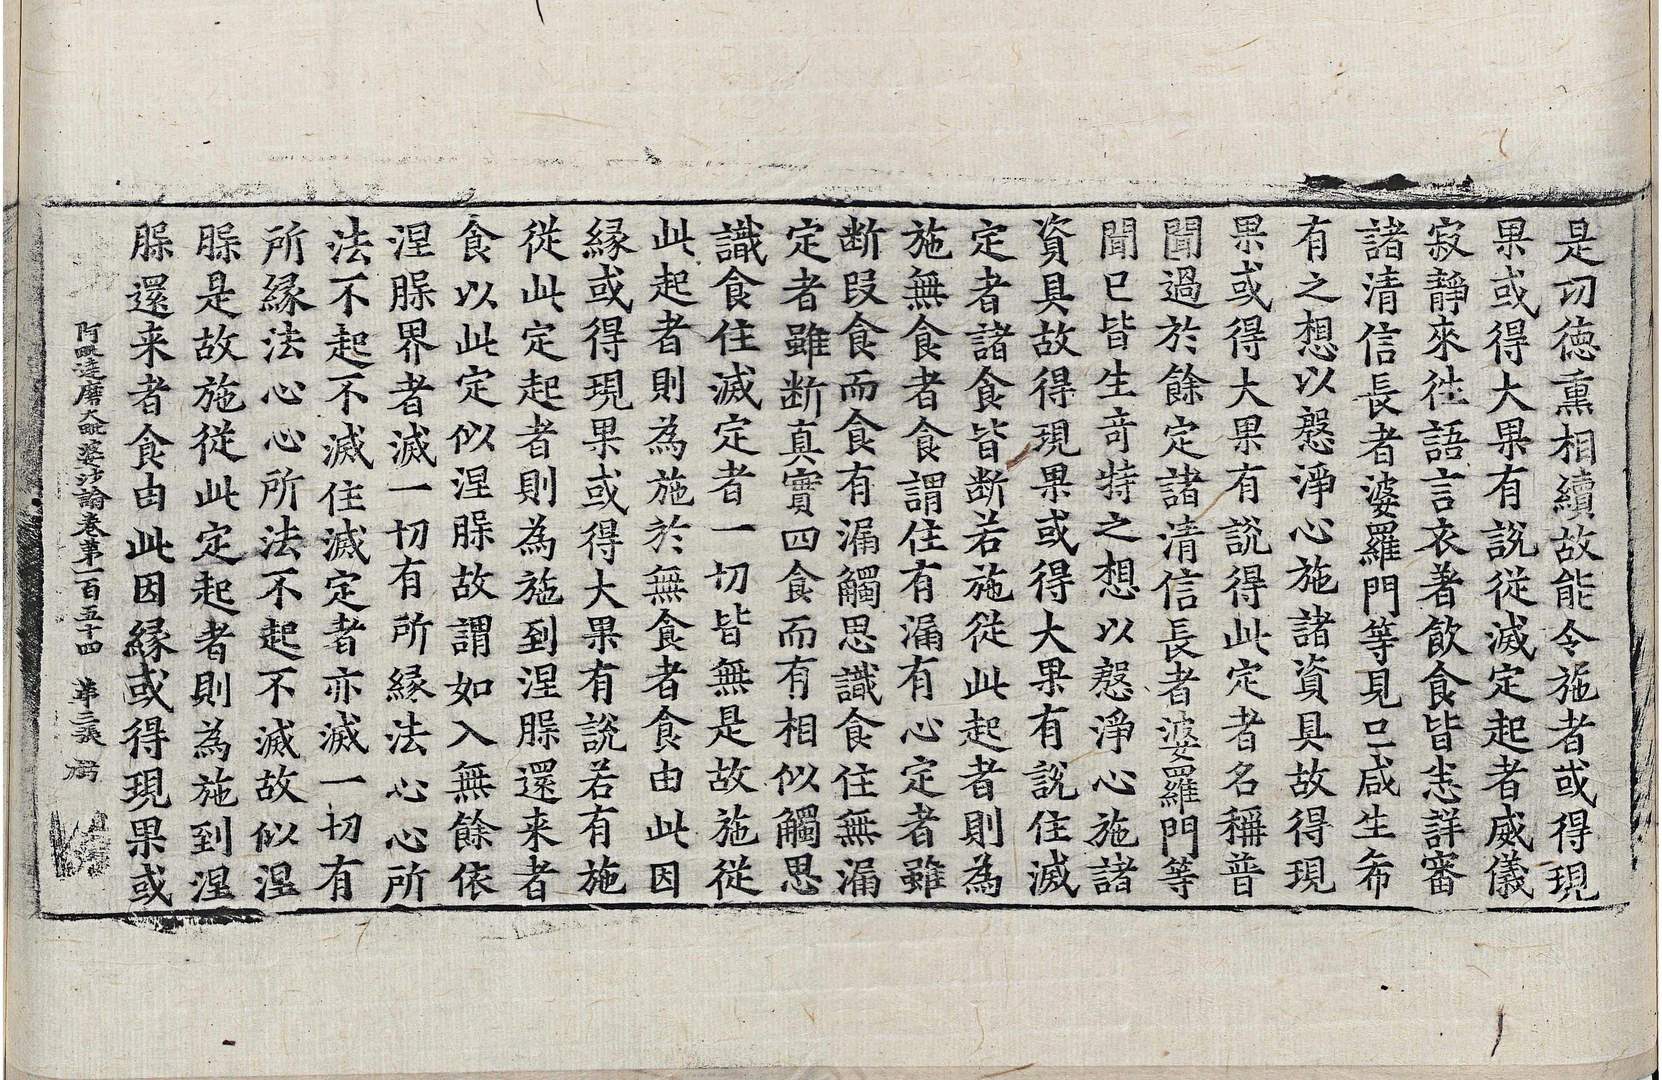 是㓛徳熏相續故能令施者或得現
果或得大果有說從滅定起者威儀
寂靜來往語言衣著飲食皆悉詳審
諸清信長者婆羅門等見已咸生希
有之想以慇淨心施諸資具故得現
果或得大果有說得此定者名稱普
聞過於餘定諸清信長者婆羅門等
聞已皆生竒特之想以慇淨心施諸
資具故得現果或得大果有說住滅
定者諸食皆断若施從此起者則為
施無食者食謂住有漏有心定者雖
断段食而食有漏觸思識食住無漏
定者雖断真實四食而有相似觸思
識食住滅定者一切皆無是故施從
此起者則為施於無食者食由此因
緣或得現果或得大果有說若有施
從此定起者則為施到涅槃還来者
食以此定似涅槃故謂如入無餘依
涅槃界者滅一切有所緣法心心所
法不起不滅住滅定者亦滅一切有
所緣法心心所法不起不滅故似涅
槃是故施從此定起者則為施到涅
槃還来者食由此因緣或得現果或
阿毗達磨大毗婆沙論卷第一百五十四 第三張